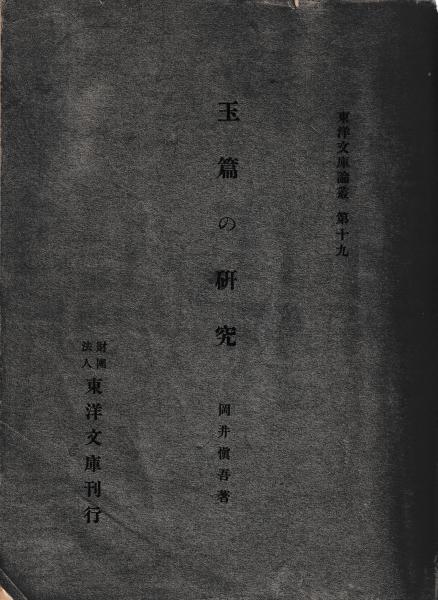 東洋文庫論叢 第十九
玉篇の研究
岡井愼吾著
財團法人
東洋文庫刊行